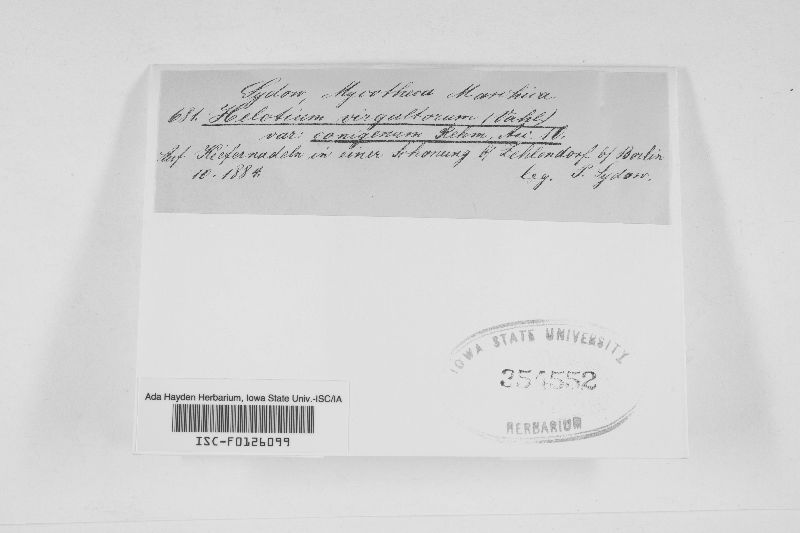 Sydow, Mycotheca Marchica
681. Helotium virgultorum (Vahl)
var: conigenum Rehm, Asc 10.
Auf Kiefernadeln in einer Schonung b/ Zehlendorf b/ Berlin
10. 1884. leg. P. Sydow.
IOWA STATE UNIVERSITY
354552
HERBARIUM
Ada Hayden Herbarium, Iowa State Univ.-ISC/IA
ISC-F0126099